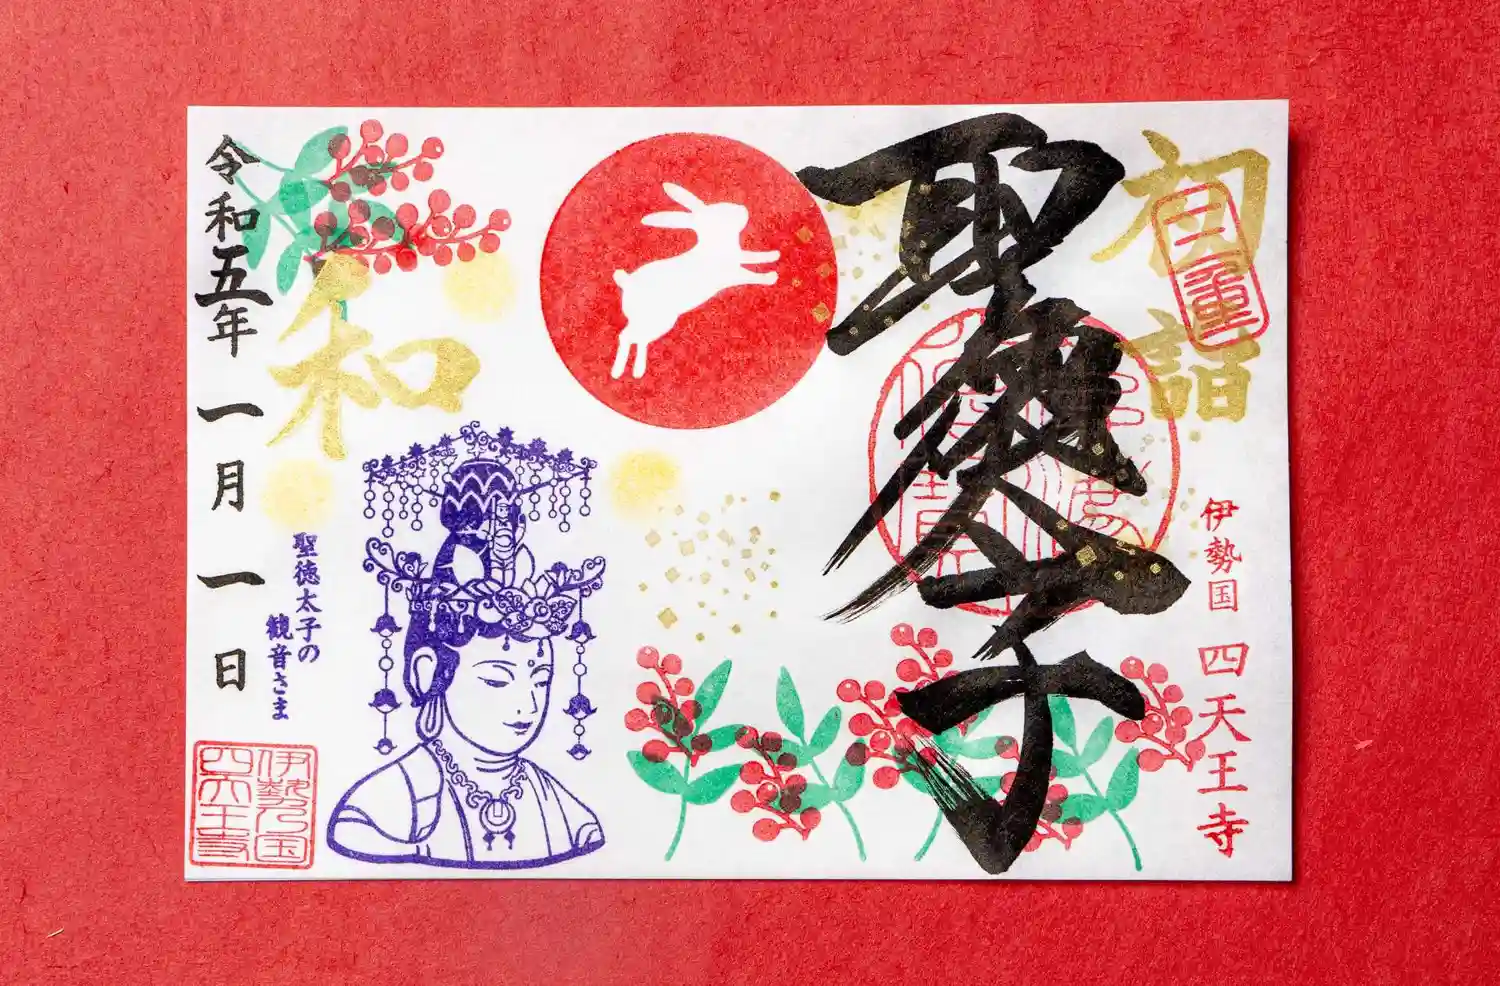 初詣
三重
聖徳太子
伊勢国 四天王寺
和
聖徳太子の
観音さま
令和五年 一月 一日
伊勢乃国
四天王寺